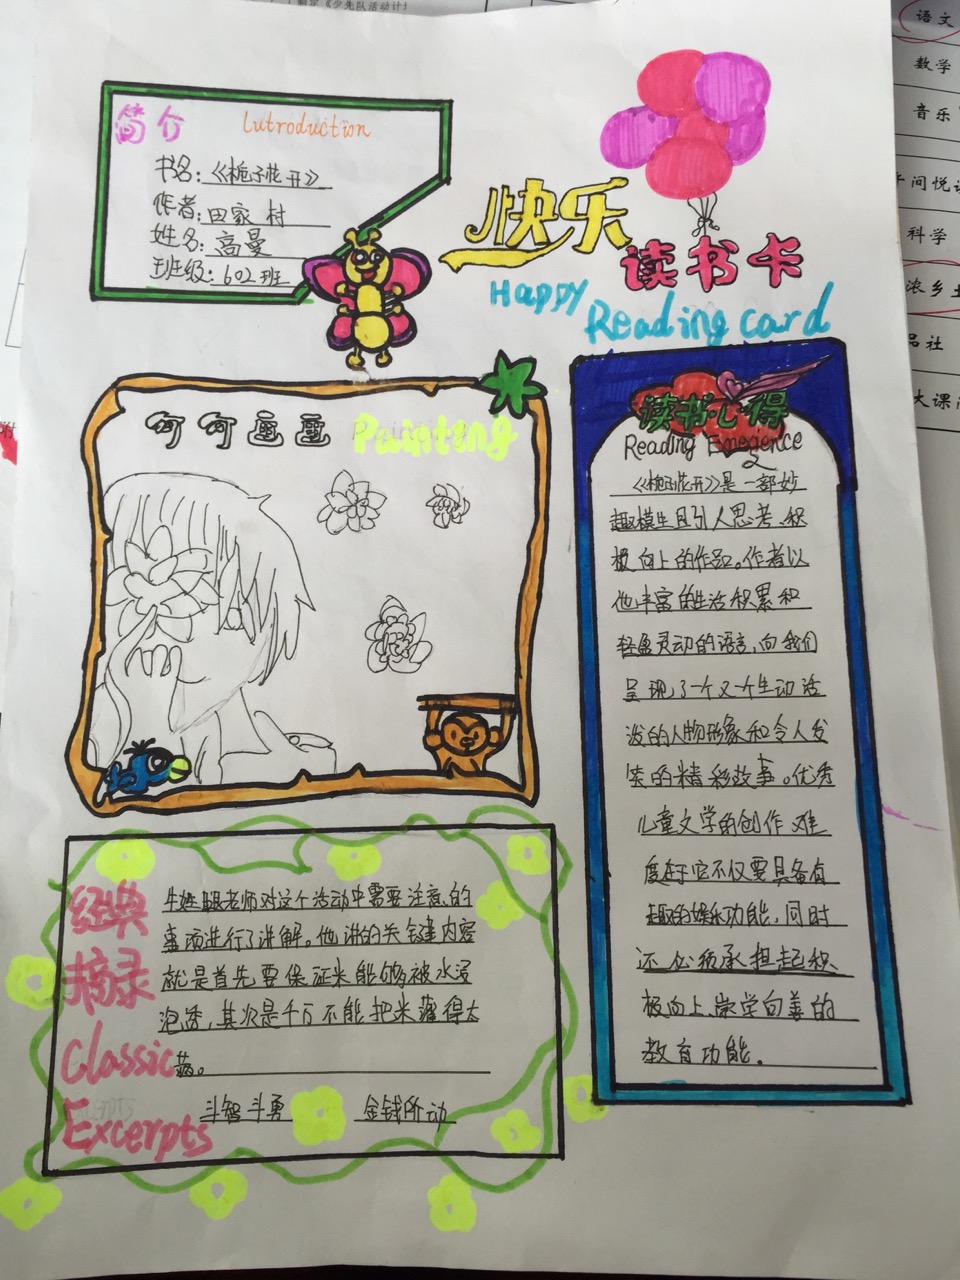 制定《少先队活动计
语文
数学
音乐
午间悦读
科学
浓乡土
品社
大课间
简介 Lutroduction
书名:《栀子花开》
作者:田家村
姓名:高曼
班级:602班
快乐
读书卡
Happy
Reading card
何何画画 Painting
读书心得
Reading
《栀子花开》是一部妙
趣横生且引人思考、积
极向上的作品。作者以
他丰富的生活积累和
轻盈灵动的语言,向我们
呈现了一个又一个生动活
泼的人物形象和令人发
笑的精彩故事。优秀
儿童文学的创作难
度在于它不仅要具备有
趣的娱乐功能,同时
还必须承担起积
极向上、崇学向善的
教育功能。
经典
摘录
Classic
Excerpts
牛姓腿老师对这个活动中需要注意的
事项进行了讲解。他讲的关键内容
就是首先要保证米能够被水浸
泡透,其次是千万不能把米蒲得太
荡。
斗智斗勇 金钱所动